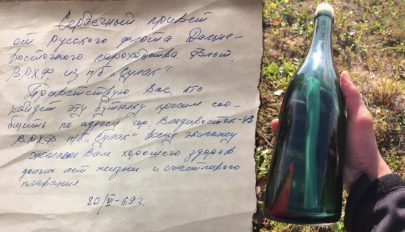 Сердечный привет
от русского флота Дальне-
восточного пароходства. Флот.
ВРХФ из п/б "Сулак"
Приветствую Вас, кто
найдет эту бутылку просим сооб-
щить по адресу гор. Владивосток-43
ВРХФ п/б "Сулак" всему экипажу
желаем Вам хорошего здоровья
долгих лет жизни и счастливого
плавания
20/VI-69 г